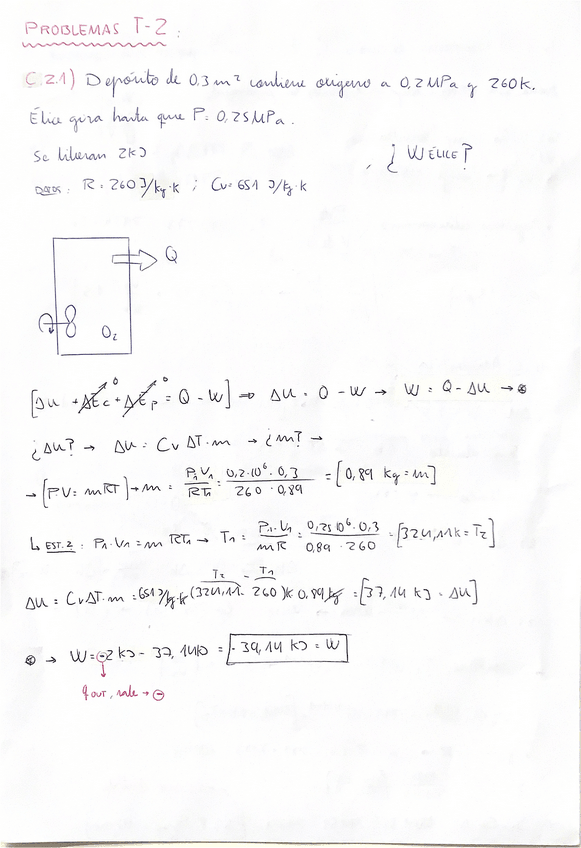 PROBLEMAS T-2:
C.2.1) Depósito de 0,3 m³ contiene oxigeno a 0,2 MPa y 260K.
Élice gira hasta que P=0,25MPa.
Se liberan 2kJ
¿W ÉLICE?
DATOS: R=260 J/kg·K ; Cv=651 J/kg·K
Q
O₂
[ΔU + ΔEc⁰ + ΔEp⁰ = Q - W] ⇒ ΔU = Q - W → W = Q - ΔU → ⊛
¿ΔU? → ΔU = Cv ΔT·m → ¿m? →
→ [PV = mRT] → m = P₁V₁/RT₁ = 0,2·10⁶·0,3/260·0,89 = [0,89 kg = m]
↳ EST.2: P₁·V₁ = m RT₁ → T₁ = P₁·V₁/mR = 0,25·10⁶·0,3/0,89·260 = [324,11K = T₂]
T₂ - T₁
ΔU = CvΔT·m = 651 J/kg·K (324,11 - 260)K 0,89 kg = [37,14 kJ = ΔU]
⊛ → W = -2kJ - 37,14kJ = -39,14 kJ = W
q out, sale → ⊖